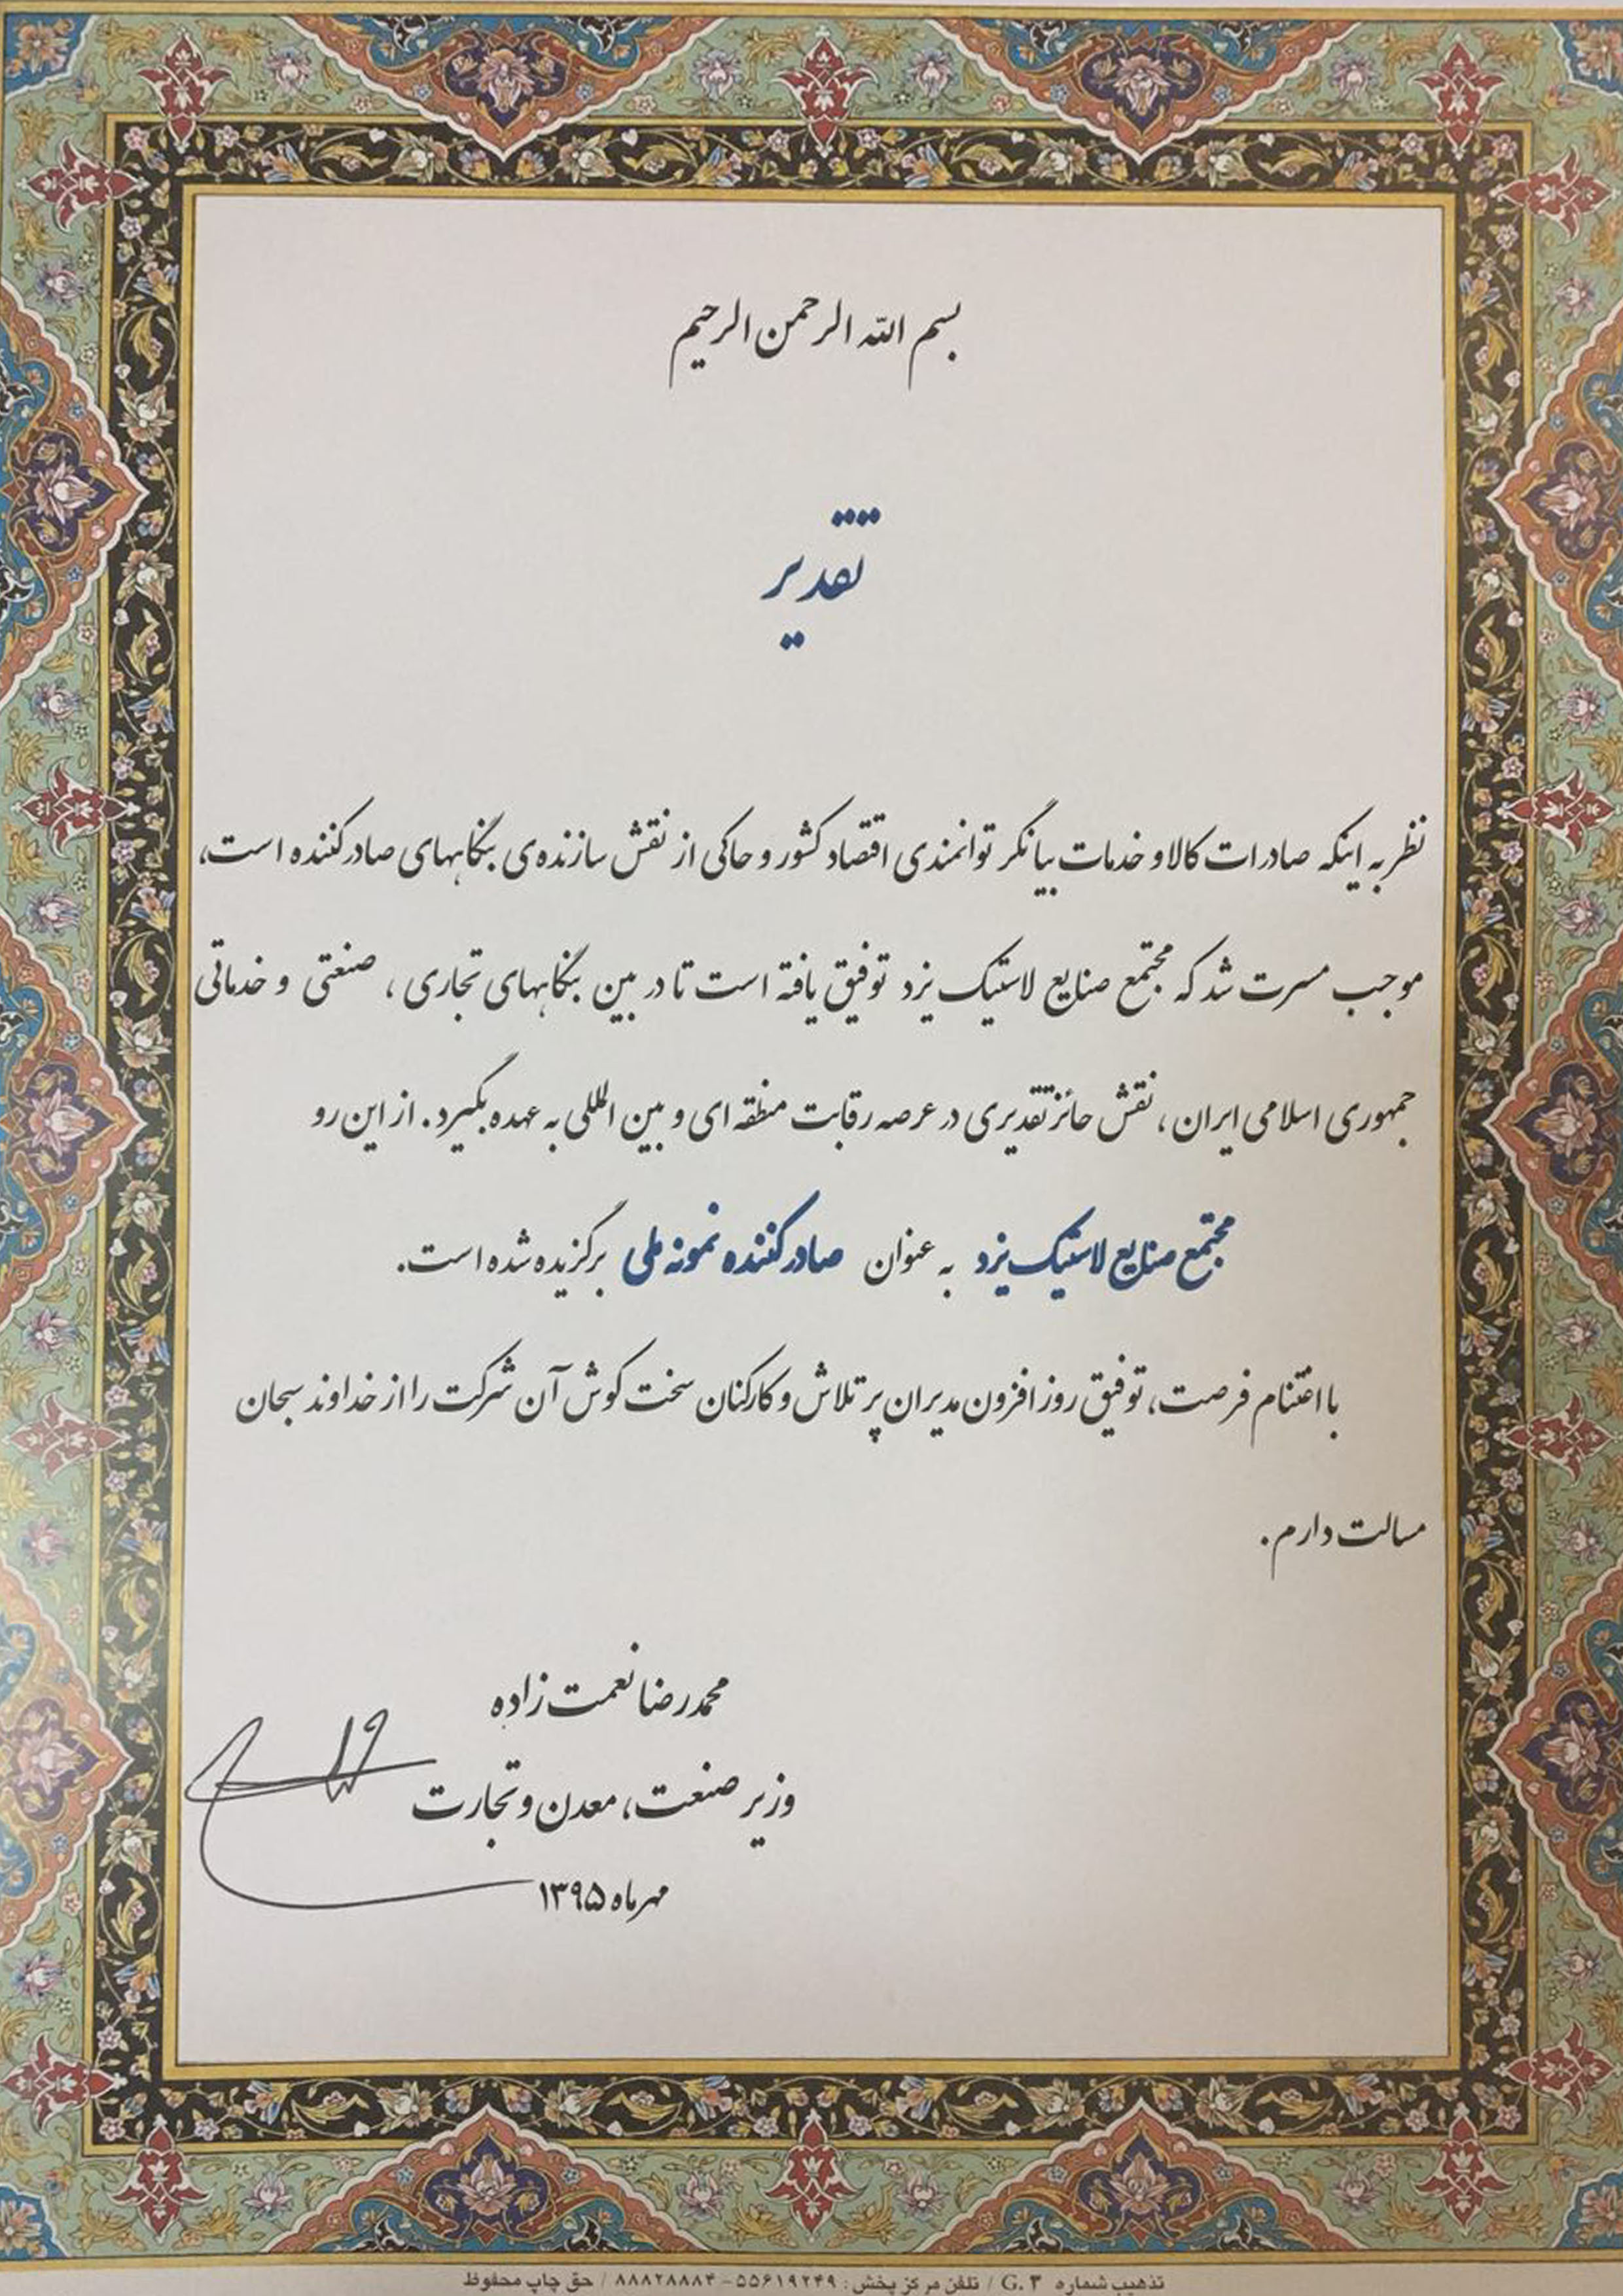 بسم الله الرحمن الرحیم
تقدیر
نظر به اینکه صادرات کالا و خدمات بیانگر توانمندی اقتصاد کشور و حاکی از نقش سازنده‌ی بنگاههای صادرکننده است،
موجب مسرت شد که مجتمع صنایع لاستیک یزد توفیق یافته است تا در بین بنگاههای تجاری ، صنعتی و خدماتی
جمهوری اسلامی ایران ، نقش حائز تقدیری در عرصه رقابت منطقه ای و بین المللی به عهده بگیرد. از این رو
مجتمع صنایع لاستیک یزد به عنوان صادرکننده نمونه ملی برگزیده شده است.
با اغتنام فرصت، توفیق روز افزون مدیران پر تلاش و کارکنان سخت کوش آن شرکت را از خداوند سبحان
مسالت دارم.
محمدرضا نعمت زاده
وزیر صنعت، معدن و تجارت
مهرماه ۱۳۹۵
تذهیب شماره G. ۳ / تلفن مرکز پخش: ۵۵۶۱۹۲۴۹ - ۸۸۸۲۸۸۸۴ / حق چاپ محفوظ